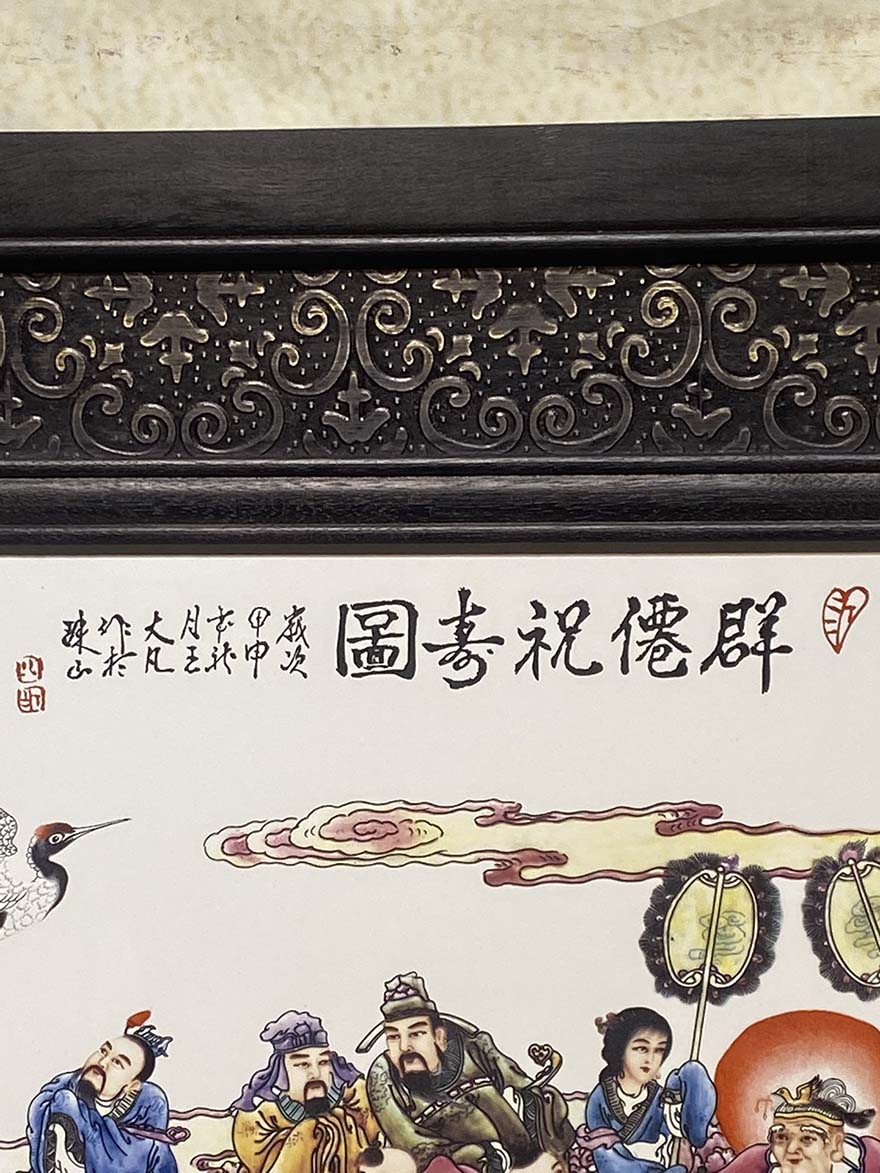 群僊祝寿圖
歲次
甲申
月王
大凡
作於
珠山